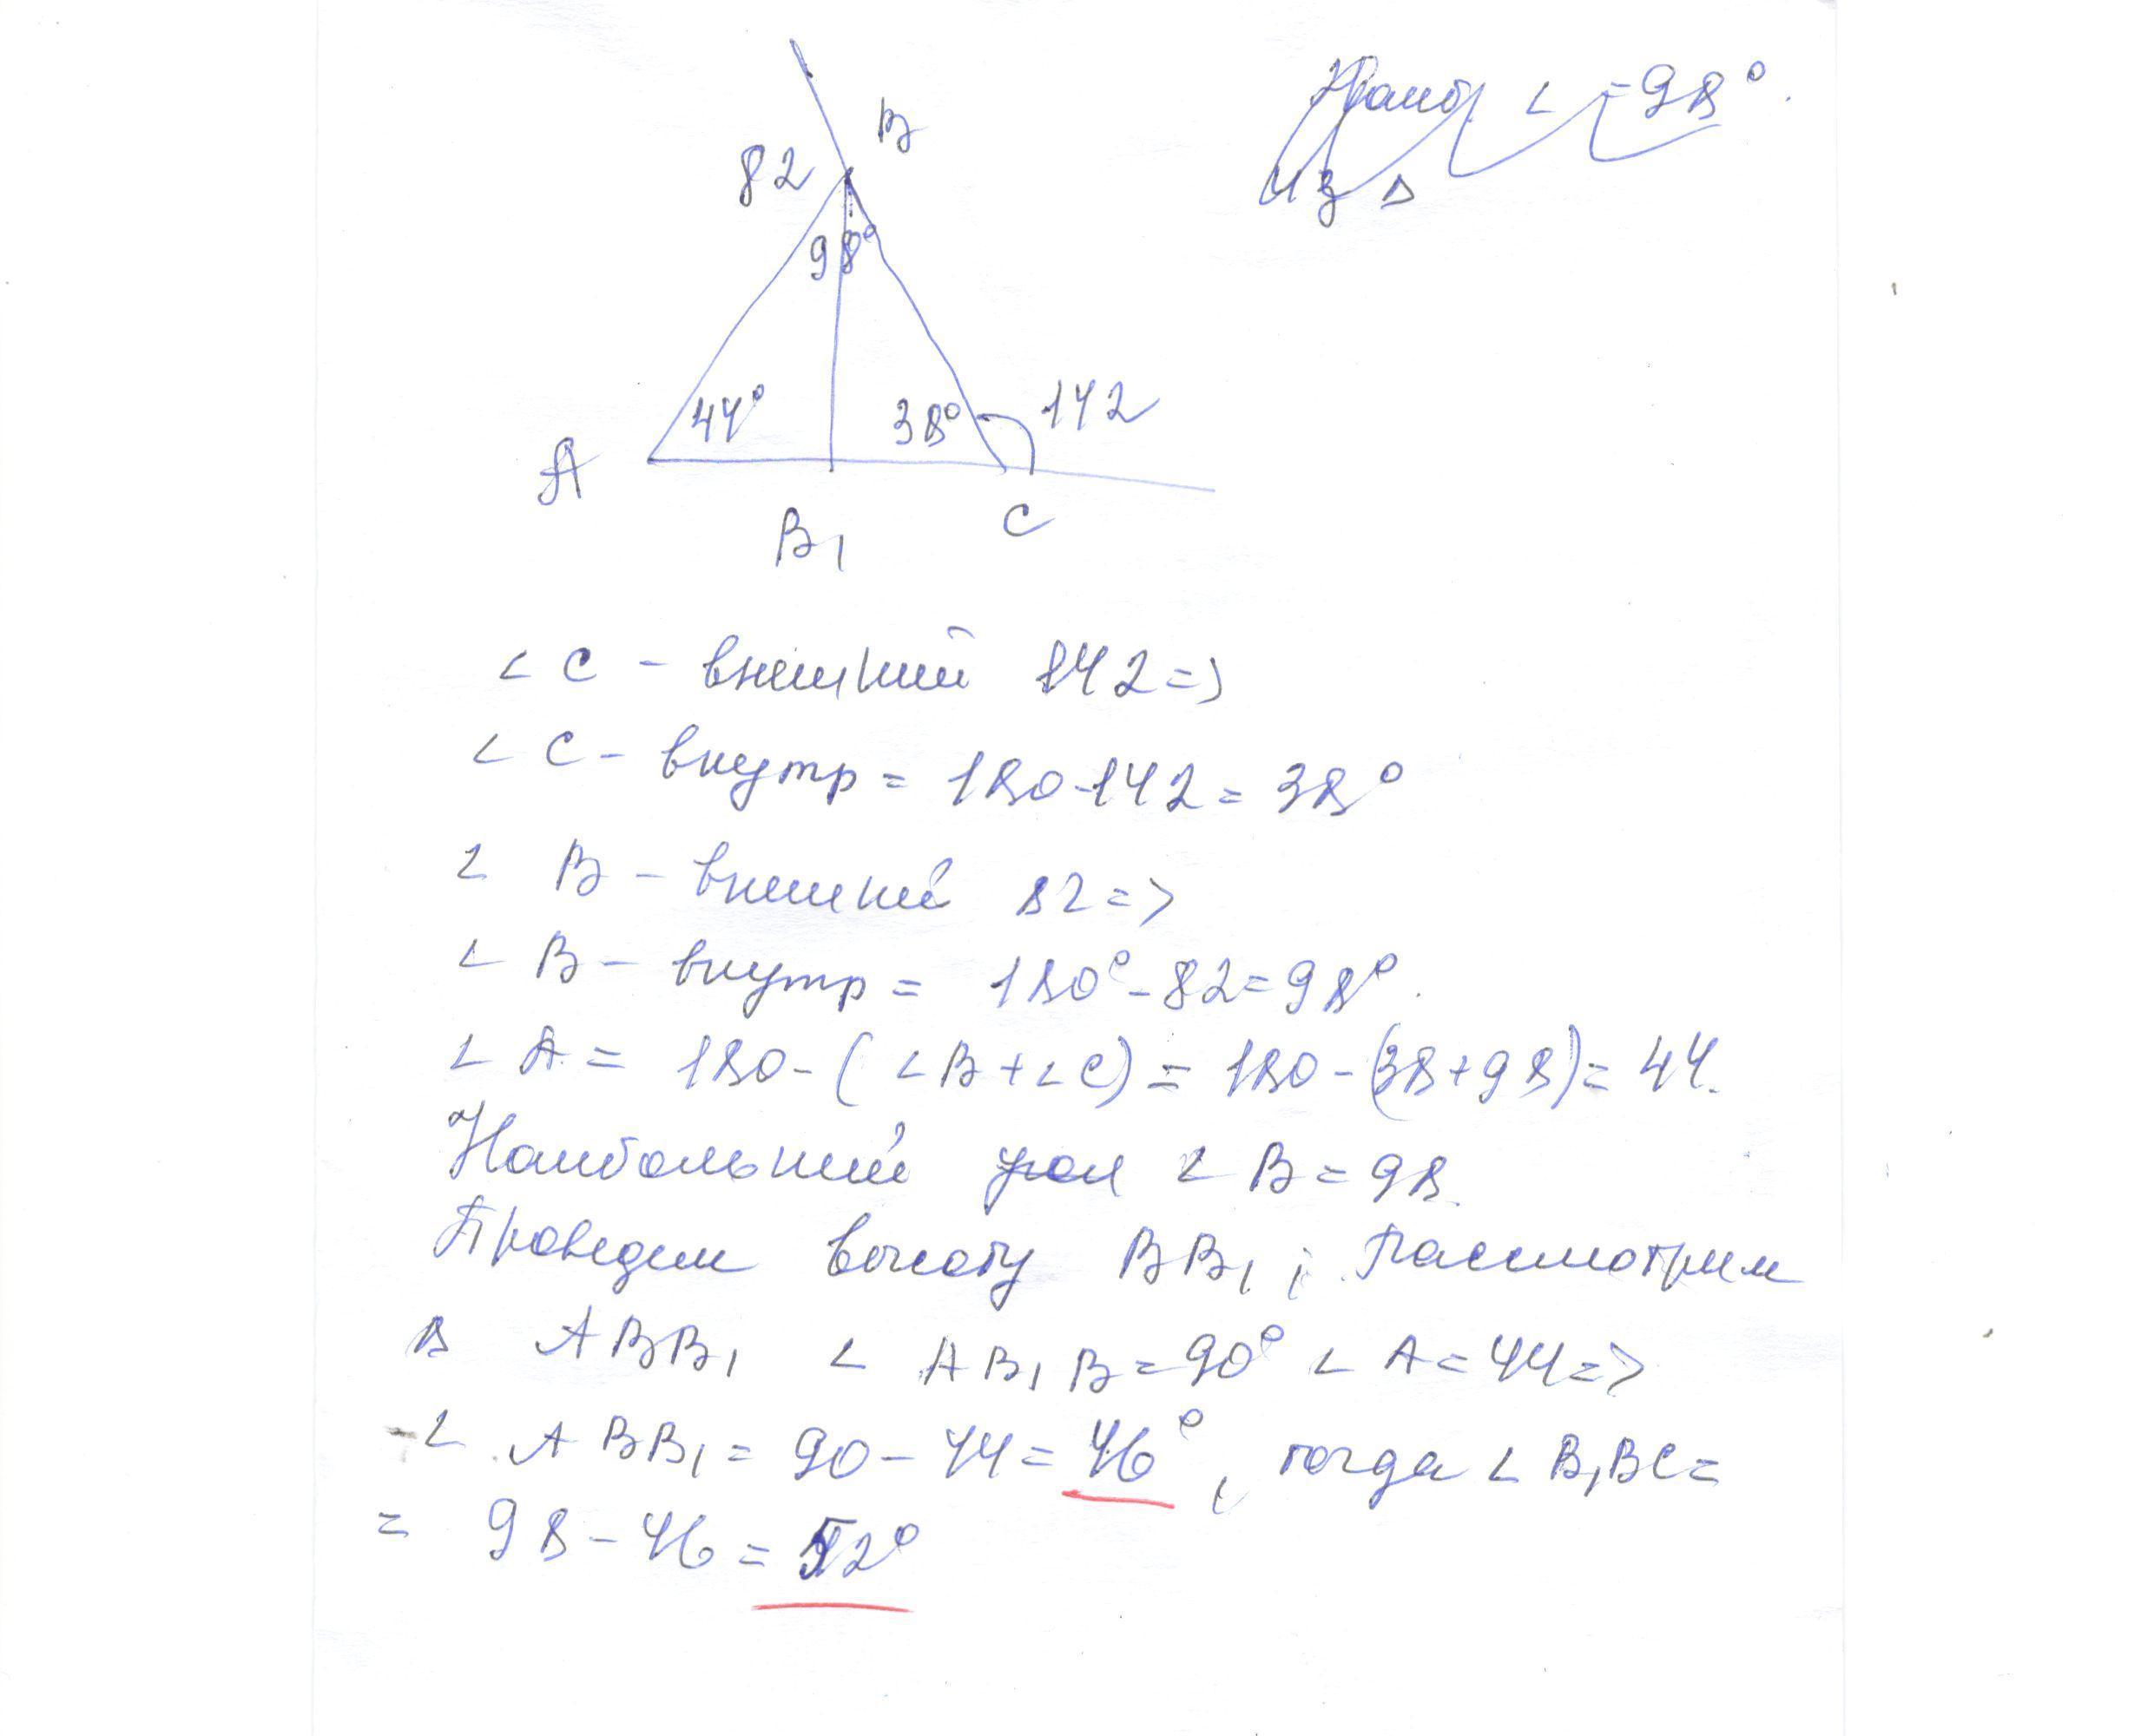 Наиб ∠ = 98°.
из Δ
B
82
98°
44°
38°
142
A
C
B₁
∠ C - внешний 142 =>
∠ C - внутр = 180-142 = 38°
∠ B - внешний 82 =>
∠ B - внутр = 180° - 82 = 98°.
∠ A = 180 - ( ∠B + ∠C) = 180 - (38+98) = 44.
Наибольший угол ∠ B = 98.
Проведем высоту BB₁, рассмотрим
Δ ABB₁ ∠ AB₁B = 90° ∠ A = 44 =>
-∠ ABB₁ = 90 - 44 = 46°, тогда ∠ B₁BC =
= 98 - 46 = 52°